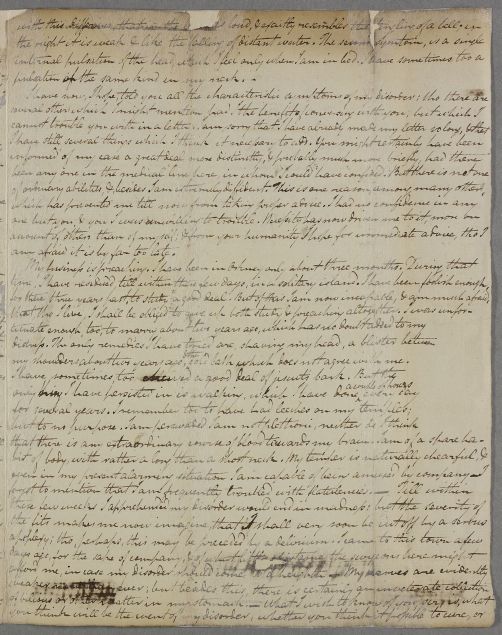 with this difference, that in the loud, & exactly resembles the tingling of a bell: in
the right it is weak & like the falling of distant water. The second symptom, is a single
internal pulsation of the head, which I feel only when I am in bed. I have sometimes too a
pulsation of the same kind in my neck. —
I have now, I hope, told you all the characteristic symptoms of my disorder; tho there are
several others which I might mention, had I the benefit of conversing with you, but which I
cannot trouble you with in a letter. I am sorry that I have already made my letter so long, & that
I have still several things which I think it necessary to add. You might certainly have been
informed of my case a great deal more distinctly, & probably much more briefly, had there
been any one in the medical line here, in whom I could have confided. But there is not one
of ordinary abilities & besides I am extremely diffident. This is one reason among many others,
which has prevented me till now from taking proper advice. I had no confidence in any
one but you & you I was unwilling to trouble. Necessity has now driven me to it more on
account of others than of myself: & from your humanity I hope for immediate advice, tho I
am afraid it is by far too late.
My business is preaching. I have been in about three months. During that
time I have resided till within these few days, in a solitary island. I have been foolish enough,
for these three years past, to study a good deal. But of this I am now incapable, & am much afraid,
that if I live, I shall be obliged to give up both study & preaching altogether. I was unfor-
tunate enough too to marry about two years ago, which has no doubt added to my
distress. The only remedies I have tryed are shaving my head, a blister between
my shoulders about two years ago, & the cold bath which does not agree with me.
I have sometimes, too a good deal of jesuits bark. But the
only thing I have persisted in is walking, which I have done a couple of hours every day
for several years. I remember too to have had leeches on my temples;
but to no purpose. I am persuaded I am not plethoric, neither do I think
that there is an extraordinary course of blood towards my brain. I am of a spare ha-
bit of body, with rather a long than a short neck. My temper is naturally chearful, &
even in my present alarming situation I am capable of being amused by company. I
forgot to mention that I am frequently troubled with flatulencies. — Till within
these few weeks I apprehended my disorder would end in madness; but the severity of
the fits makes me now imagine, that I shall very soon be cut off by a serous
apoplexy; tho, perhaps, this may be preceded by a delirium. I came to this town a few
days ago, for the sake of company, & of what the surgeon here might
afford me in case my disorder should come to a height. — My nerves are evidently
weaker than ever; but besides this, there is certainly an inveterate collection
of bilious or other matter in my stomach. — What I wish to know of you Sir, is, what
you think will be the event of my disorder; whether you think it possible to cure, or